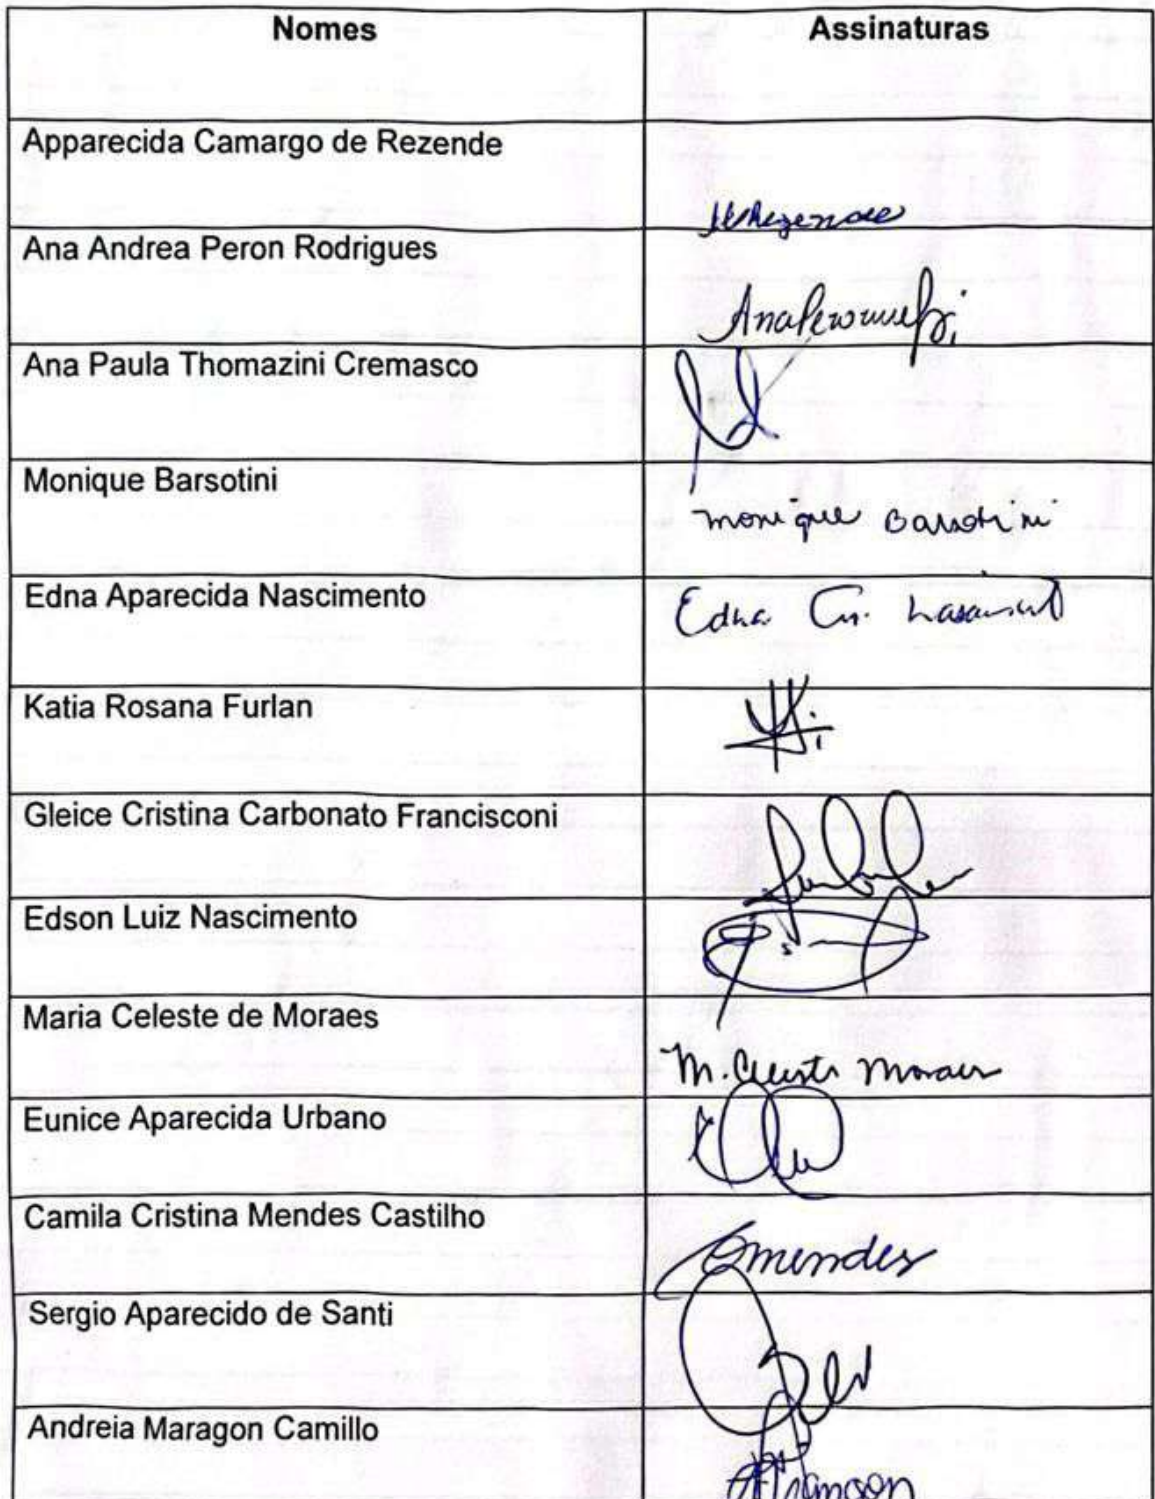 Nomes
Assinaturas
Apparecida Camargo de Rezende
Ana Andrea Peron Rodrigues
Ana Paula Thomazini Cremasco
Monique Barsotini
monique Barsotini
Edna Aparecida Nascimento
Edna
Katia Rosana Furlan
Gleice Cristina Carbonato Francisconi
Edson Luiz Nascimento
Maria Celeste de Moraes
M. Celeste Moraes
Eunice Aparecida Urbano
Camila Cristina Mendes Castilho
Cmendes
Sergio Aparecido de Santi
Andreia Maragon Camillo